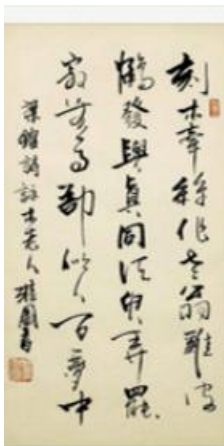 刻木牽絲作老翁雞皮
鶴發與真同須臾弄罷
寂無事還似人生一夢中
梁鍠詩詠木老人